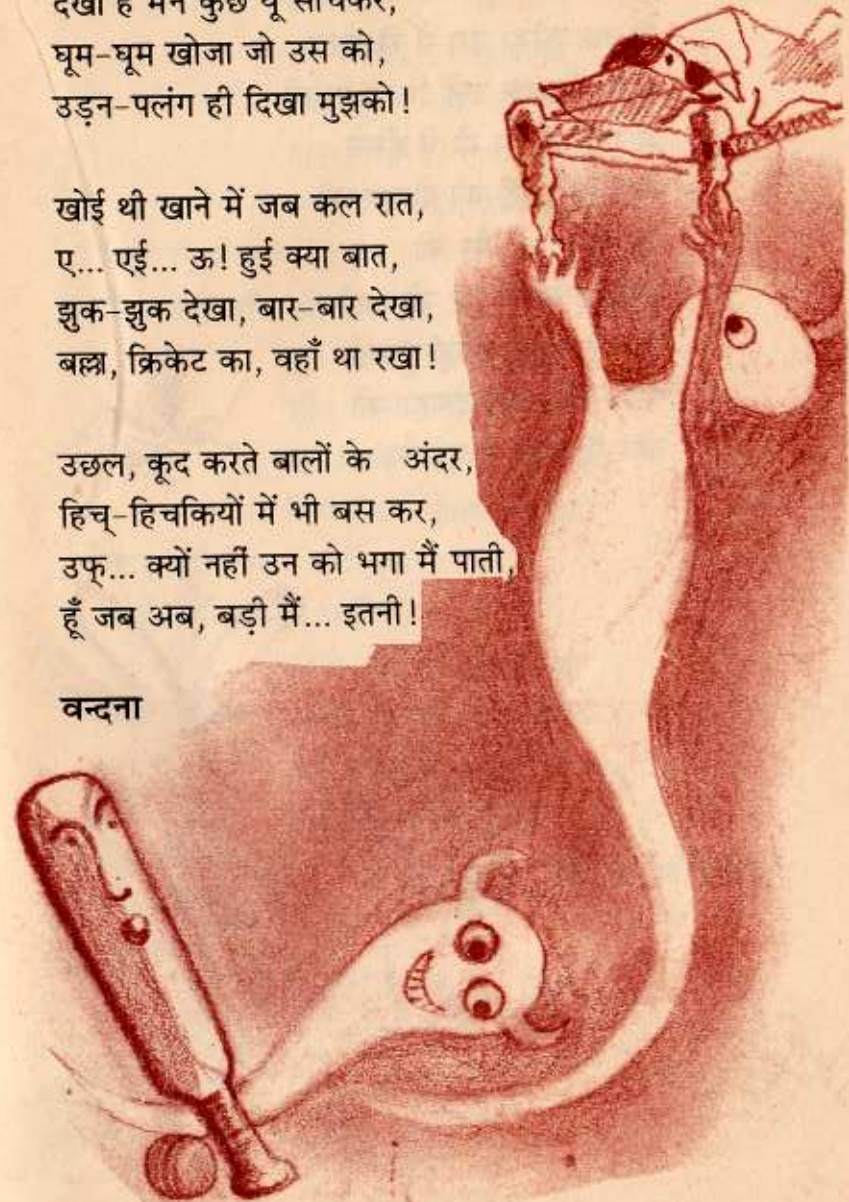 देखा है मैंने कुछ यूँ सोचकर,
घूम-घूम खोजा जो उस को,
उड़न-पलंग ही दिखा मुझको!
खोई थी खाने में जब कल रात,
ए... एई... ऊ! हुई क्या बात,
झुक-झुक देखा, बार-बार देखा,
बल्ला, क्रिकेट का, वहाँ था रखा!
उछल, कूद करते बालों के अंदर,
हिच्-हिचकियों में भी बस कर,
उफ्... क्यों नहीं उन को भगा मैं पाती,
हूँ जब अब, बड़ी मैं... इतनी!
वन्दना